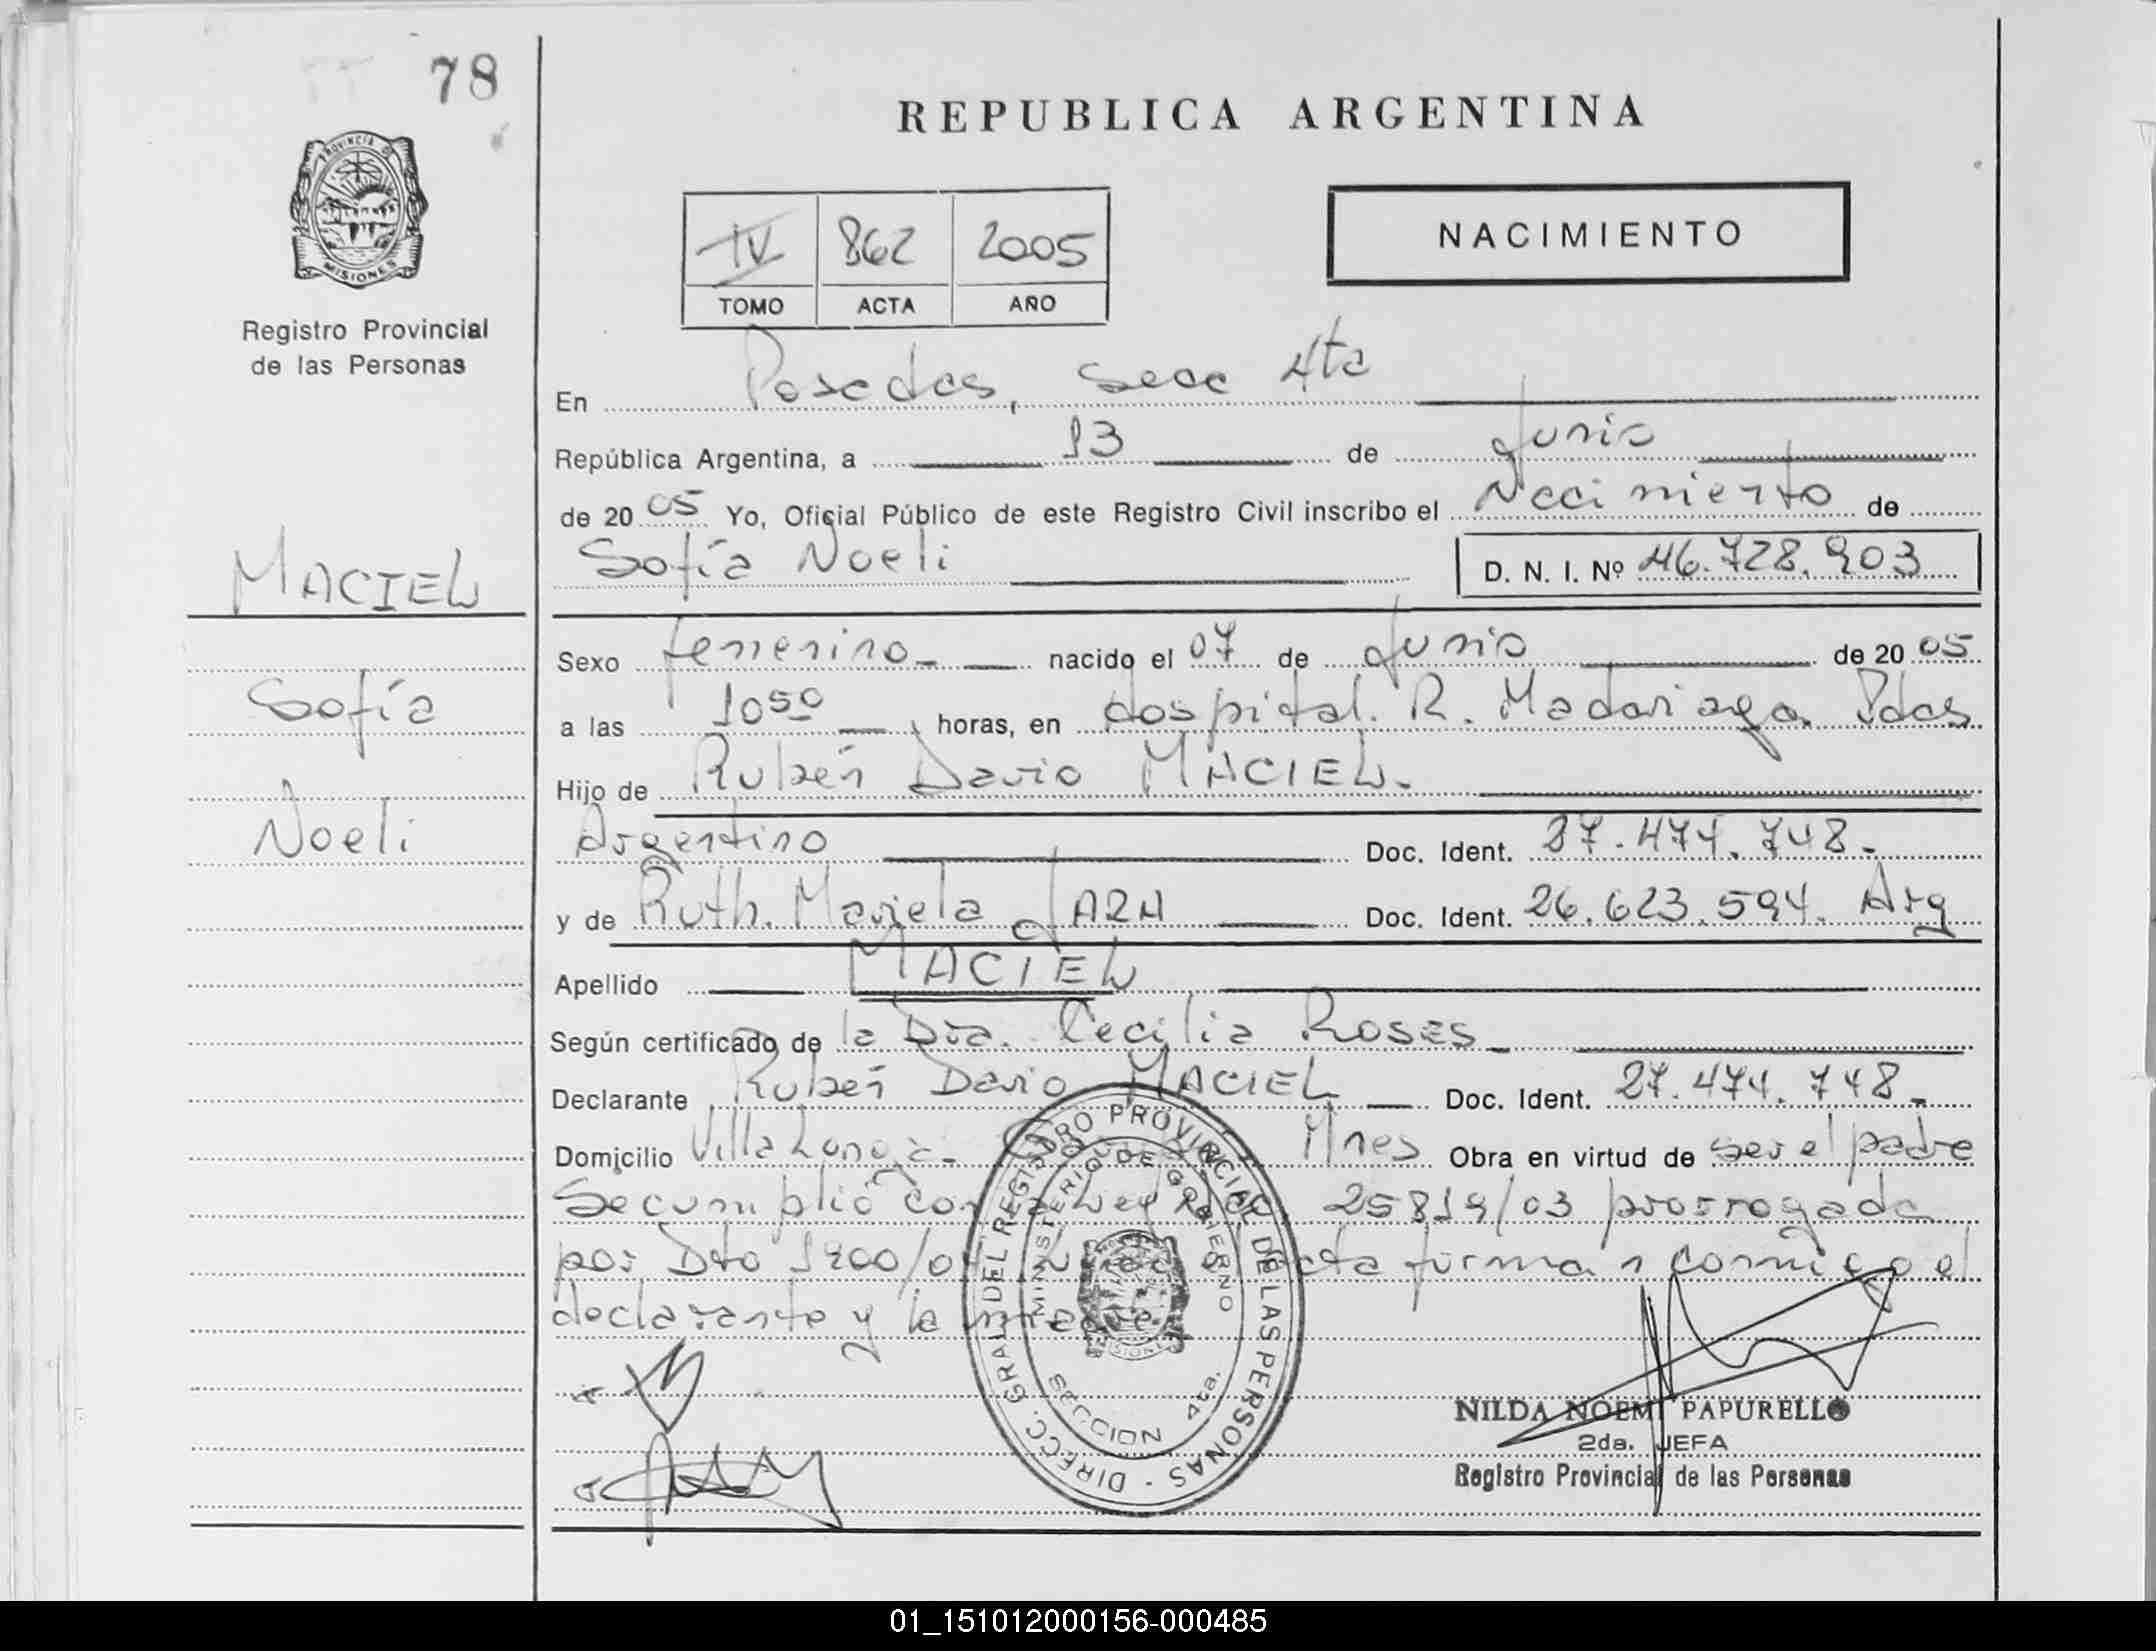 78
PROVINCIA DE
MISIONES
Registro Provincial
de las Personas
MACIEL
Sofía
Noeli
REPUBLICA ARGENTINA
IV 862 2005
TOMO ACTA AÑO
NACIMIENTO
En Posadas, Secc 4ta
República Argentina, a 13 de Junio
de 2005 Yo, Oficial Público de este Registro Civil inscribo el Nacimiento de
Sofía Noeli D. N. I. Nº 46.728.903
Sexo femenino nacido el 07 de Junio de 2005
a las 1050 horas, en Hospital. R. Madariaga Pdas
Hijo de Rubén Dario MACIEL.
Argentino Doc. Ident. 27.474.748.
y de Ruth. Mariela JARA Doc. Ident. 26.623.594. Arg
Apellido MACIEL
Según certificado de la Dra. Cecilia Roses
Declarante Rubén Dario MACIEL Doc. Ident. 27.474.748.
Domicilio Villa Longa. Mnes Obra en virtud de ser el padre
Se cumplió con la Ley 25819/03 prorrogada
por Dto 1900/0 acta firman conmigo el
declarante y la madre
DIRECC. GRAL DEL REGISTRO PROVINCIAL DE LAS PERSONAS
MINISTERIO DE GOBIERNO
MISIONES
SECCION 4ta.
NILDA NOEMI PAPURELLO
2da. JEFA
Registro Provincial de las Personas
01_151012000156-000485